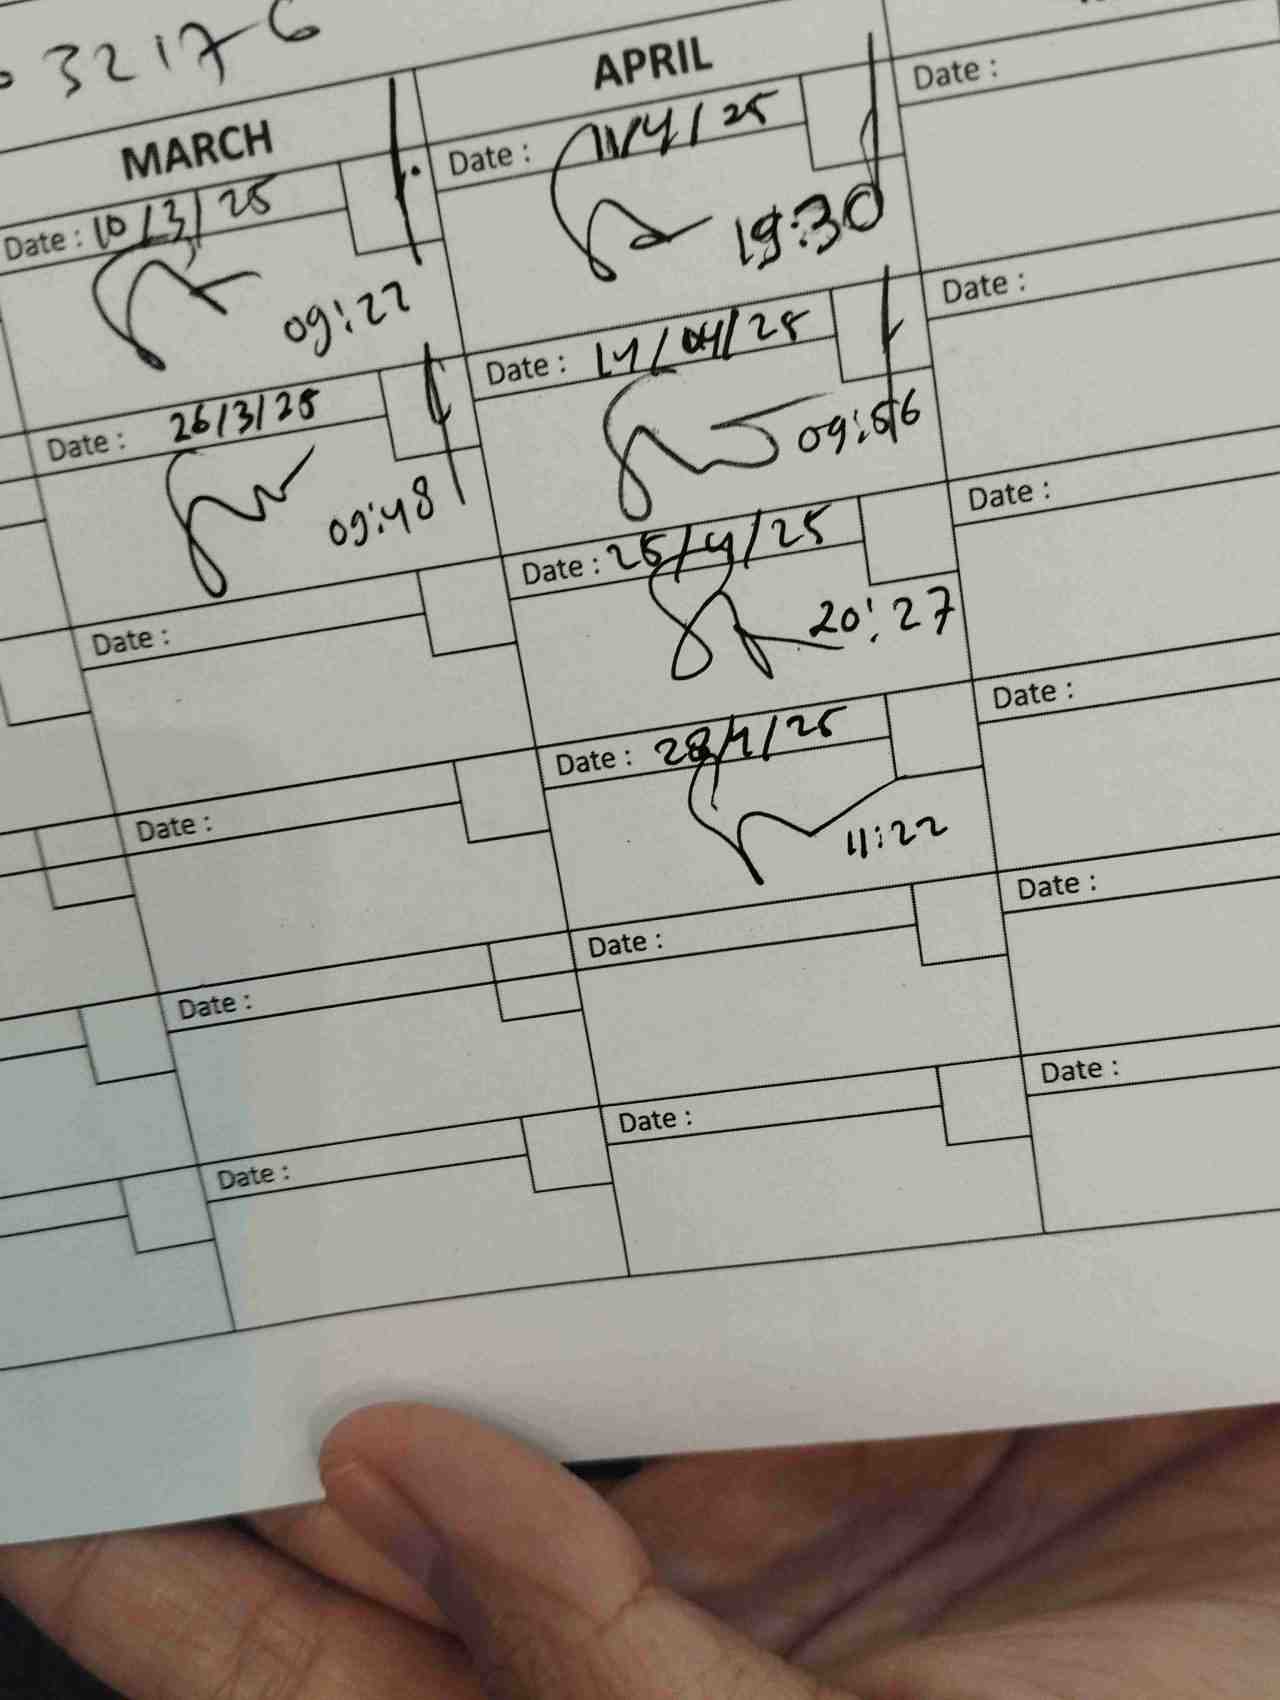 32176
MARCH
Date : 10/3/25
09:22
Date : 26/3/25
09:48
Date :
Date :
Date :
Date :
APRIL
Date : 11/4/25
19:30
Date : 14/04/25
09:56
Date : 25/4/25
20:27
Date : 28/4/25
11:22
Date :
Date :
Date :
Date :
Date :
Date :
Date :
Date :